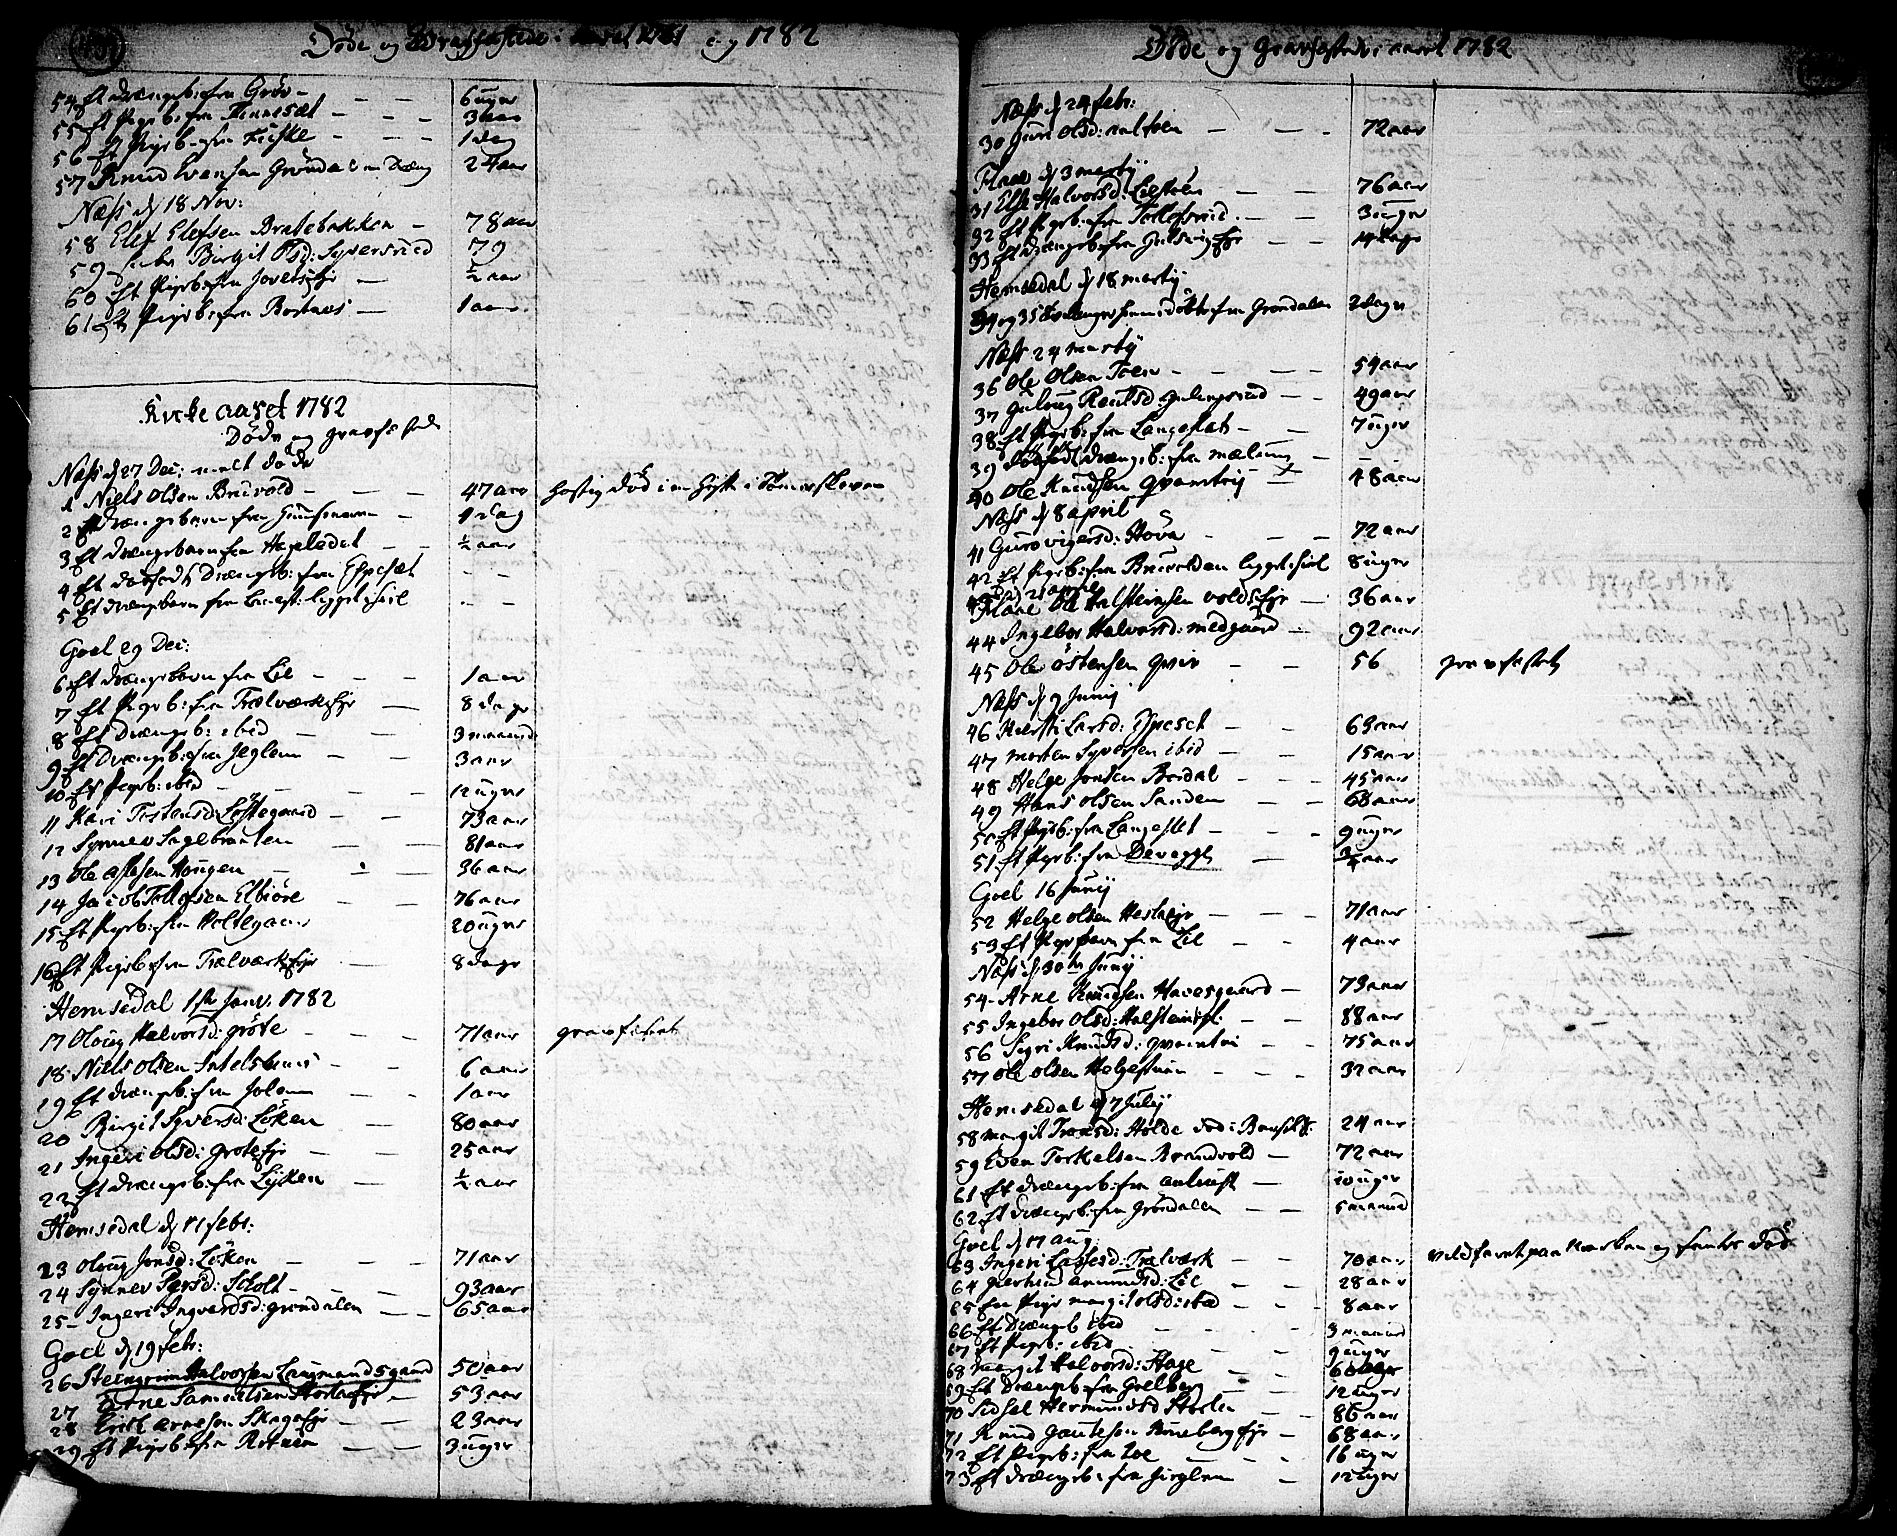 Døde og Gravfæstede i aaret 1781 og 1782
54 Et drengeb: fra Grøv - - - 6 uger
55 Et Pigeb: fra Finnesæt - - - 3 aar
56 Et Pigeb: fra Fiske - - - 1 dag
57 Knud Evensen Grøndal en Dreng 24 aar
Næss d 18 Nov:
58 Elef Elefsen Bratebakken - 78 aar
59 Birgit Olsd: Syversrud 79
60 Et Pigeb: fra Jorde Ejer - ½ aar
61 Et Pigeb: fra Bortnes - 1 aar
Kirke aaret 1782
Døde og gravfæstede
Næss d 27 Dec: meldt døde
1 Niels Olsen Bruvold - - - 47 aar hastig død i en hytte i Tømmerskoven
2 Et drengebarn fra - 1 dag
3 Et drengebarn fra Hageledet - - ½ aar
4 Et dødfødt Drengeb: fra Espeset - -
5 Et drengebarn fra liggti siil - -
Goel 29 Dec:
6 Et drengebarn fra Lie - - - 1 aar
7 Et Pigeb: fra Trælværk Ejer - 8 dage
8 Et Drengeb: ibid - - 3 maaneder
9 Et Drengeb: fra Jeglem - - 3 aar
10 Et Pigeb: ibid - - - - 12 uger
11 Kari Torstensd: Løstegaard - - 73 aar
12 Synnev Sagebraaten - - 81 aar
13 Ole Olsen Hougen - - 36 aar
14 Jacob Tollefsen Elbiøre - - 76 aar
15 Et Pigeb: fra Holtegaar 20 uger
16 Et Pigeb: fra Trælværk Ejer - 8 dage
Hemsedal 1ste Janv. 1782
17 Oloug Halvorsd: Grøte - - 71 aar gravfæstet
18 Niels Olsen - - 6 aar
19 Et drengeb: fra Jolem - - 1 aar
20 Birgit Syversd: Løken - 80 aar
21 Ingeri Olsd: Grøte Ejer - - 25 aar
22 Et drengeb: fra Løken - ½ aar
Hemsedal d 11 febr:
23 Oloug Jonsd: Løken - - - 71 aar
24 Synnev Persd: Scholt - - - 93 aar
25 Ingeri Ingvardsd: Grøndalen - - 65 aar
Goel d 19 febr:
26 Steengrim Halvorsen Laugmandsgaard 50 aar
27 Arne Samuelsen Storla Ejer - 53 aar
28 Erik Arnesen Skaga Ejer - - 23 aar
29 Et Pigeb: fra Rotnem - - 3 uger
Døde og Gravfæstede i aaret 1782
Næss d 24 febr:
30 Guri Olsd: - - - 72 aar
Flaae d 3 martij
31 Else Halvorsd: - - 76 aar
32 Et Pigeb: fra Tollefsrud - - 3 uger
33 Et drengeb: fra Gulsvig Ejer - - 14 dage
Hemsedal d 18 martij
34 og 35 Tvillinger hiemmedøbte fra Grøndalen 2 dage
Næss 24 martij
36 Ole Olsen Toen - - - 54 aar
37 Gulloug Gulingsrud - - 49 aar
38 Et Pigeb: fra Langeslet - - 7 uger
39 dødfødt drengeb: fra - -
40 Ole Knudsen Qvamtrij - 48 aar
Næss d 8 april
41 Guro Vigersd: Hova - - - 72 aar
42 Et Pigeb: fra Bruvolden liggti siil 8 uger
Flaae 21 april
Ole Halsteensen Volds Ejer - 36 aar
44 Ingebor Halvorsd: medgaard - 92 aar
45 Ole Østensen Qvie - - 56 gravfæstet
Næss d 9 Junij
46 Larsd: Espeset - - 63 aar
47 Morten Syversen ibid - - 15 aar
48 Helge Jonsen Bordal - - - 45 aar
49 Hans Olsen Sanden - - 68 aar
50 Et Pigeb: fra Langeslet - - 9 uger
51 Et Pigeb: fra Deveggh - ¾ aar
Goel 16 Junij
52 Helge Olsen Hesla Ejer - - - 71 aar
53 Et Pigebarn fra Lie - - 4 aar
Næss d 30te Junij
54 Arne Knudsen Havesgaard - 73 aar
55 Ingebor Olsd: - - 88 aar
56 Sigri Knudsd: Qvamtri - - 75 aar
57 Ole Olsen Helgestuen - - - 32 aar
Hemsedal d 7 Julij
58 Margit Tronsd: Holde død i 24 aar
59 Even Torkelsen Brandvold - 72 aar
61 Et drengeb: fra - - 10 uger
62 Et drengeb: fra Grøndalen - - 5 maaned
Goel d 11 aug:
63 Ingeri Lassesd: Trælværk - - 70 aar vildfaret paa Marken og funden død
64 Amundsd: Lie - - 28 aar
65 En Pige Margit Olsd: ibid - - 8 aar
66 Et Drengeb ibid - - 3 maaned
67 Et Pigeb: ibid - - 9 uger
68 Margit Halvorsd: Hage - - 60 aar
69 Et Drengeb: fra Golberg - - 12 uger
70 Sidsel Hermunsd Storlie - - 86 aar
71 Knud Gautesen Ejer - - 68 aar
72 Et Pigeb: fra Loe - - - 16 uger
73 Et drengeb: fra Jeglem - 12 uger